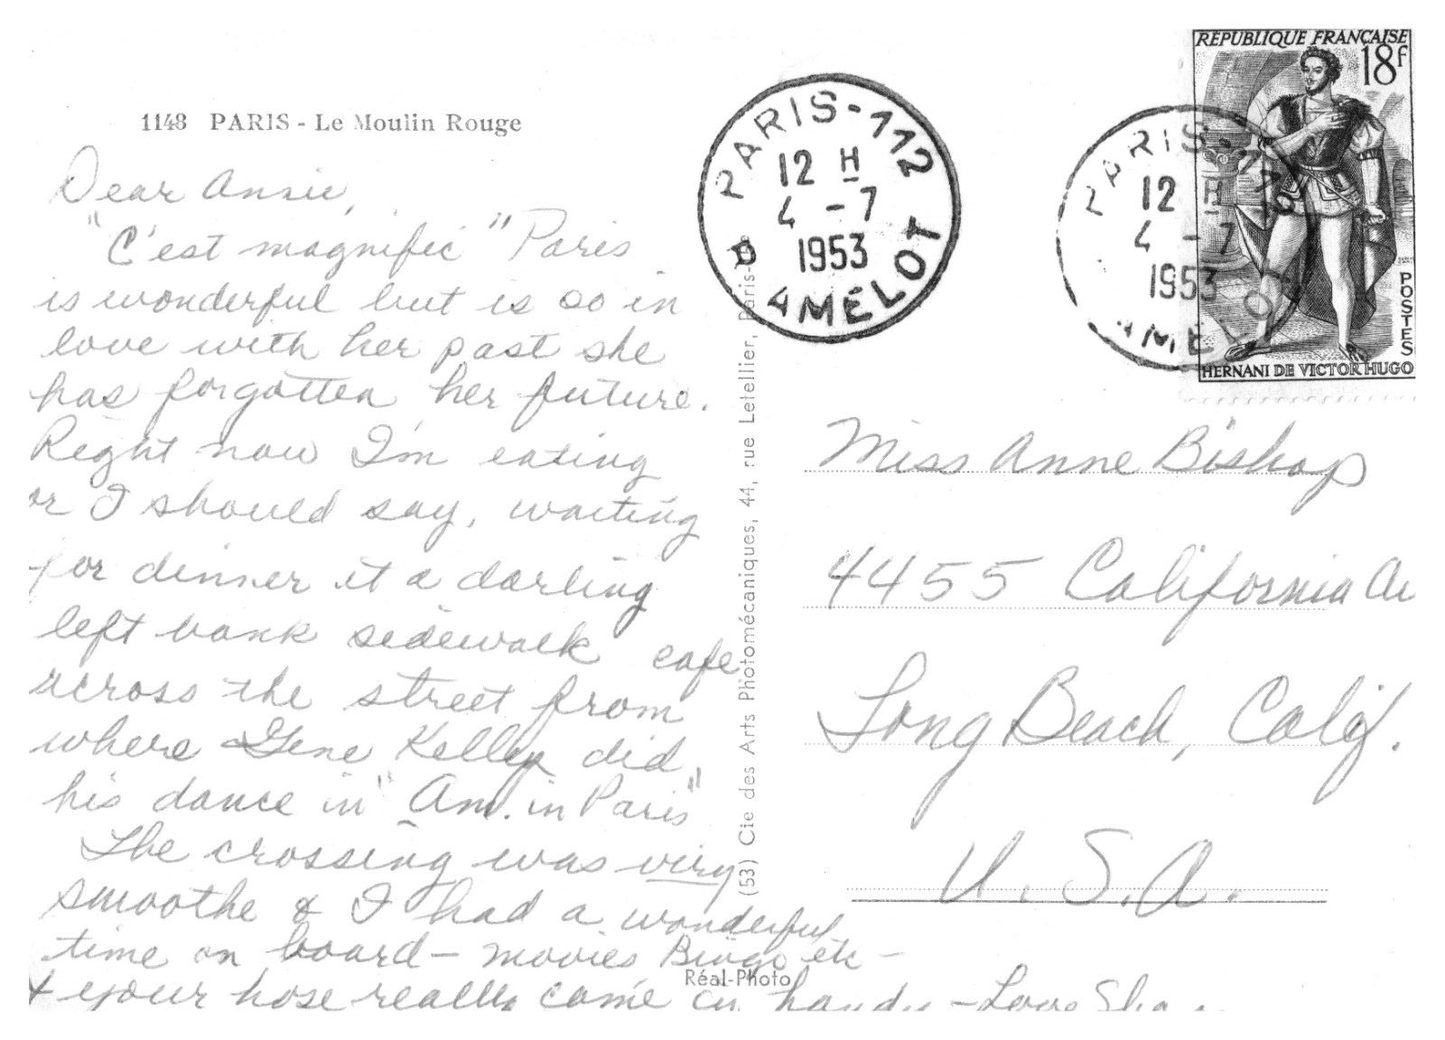 1148 PARIS - Le Moulin Rouge
Dear Annie,
"C'est magnific" Paris
is wonderful but is so in
love with her past she
has forgotten her future.
Right now I'm eating
or I should say, waiting
for dinner at a darling
left bank sidewalk cafe
across the street from
where Gene Kelley did
his dance in "Am. in Paris"
The crossing was very
smoothe & I had a wonderful
time on board - movies Bingo etc -
& your hose really came in handy - Love
Réal-Photo
(53) Cie des Arts Photomécaniques, 44, rue Letellier, Paris-
PARIS-112
12 H
4 - 7
1953
AMELOT
PARIS-112
12 H
4 - 7
1953
AMELOT
RÉPUBLIQUE FRANÇAISE
18f
POSTES
HERNANI DE VICTOR HUGO
Miss Anne Bishop
4455 California Av
Long Beach, Calif.
U.S.A.